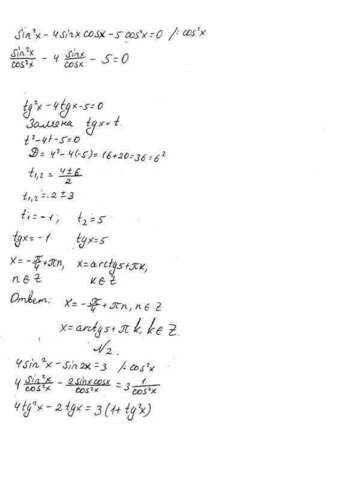 sin²x - 4sinx cosx - 5cos²x = 0 /: cos²x
sin²x/cos²x - 4 sinx/cosx - 5 = 0
tg²x - 4tgx - 5 = 0
Замена tgx = t.
t² - 4t - 5 = 0
D = 4² - 4(-5) = 16 + 20 = 36 = 6²
t₁,₂ = (4 ± 6)/2
t₁,₂ = 2 ± 3
t₁ = -1; t₂ = 5
tgx = -1 tgx = 5
x = -π/4 + πn, x = arctg5 + πk,
n ∈ Z k ∈ Z
Ответ: x = -π/4 + πn, n ∈ Z
x = arctg5 + πk, k ∈ Z.
N2.
4sin²x - sin2x = 3 /: cos²x
4 sin²x/cos²x - 2sinx cosx/cos²x = 3 1/cos²x
4tg²x - 2tgx = 3(1 + tg²x)